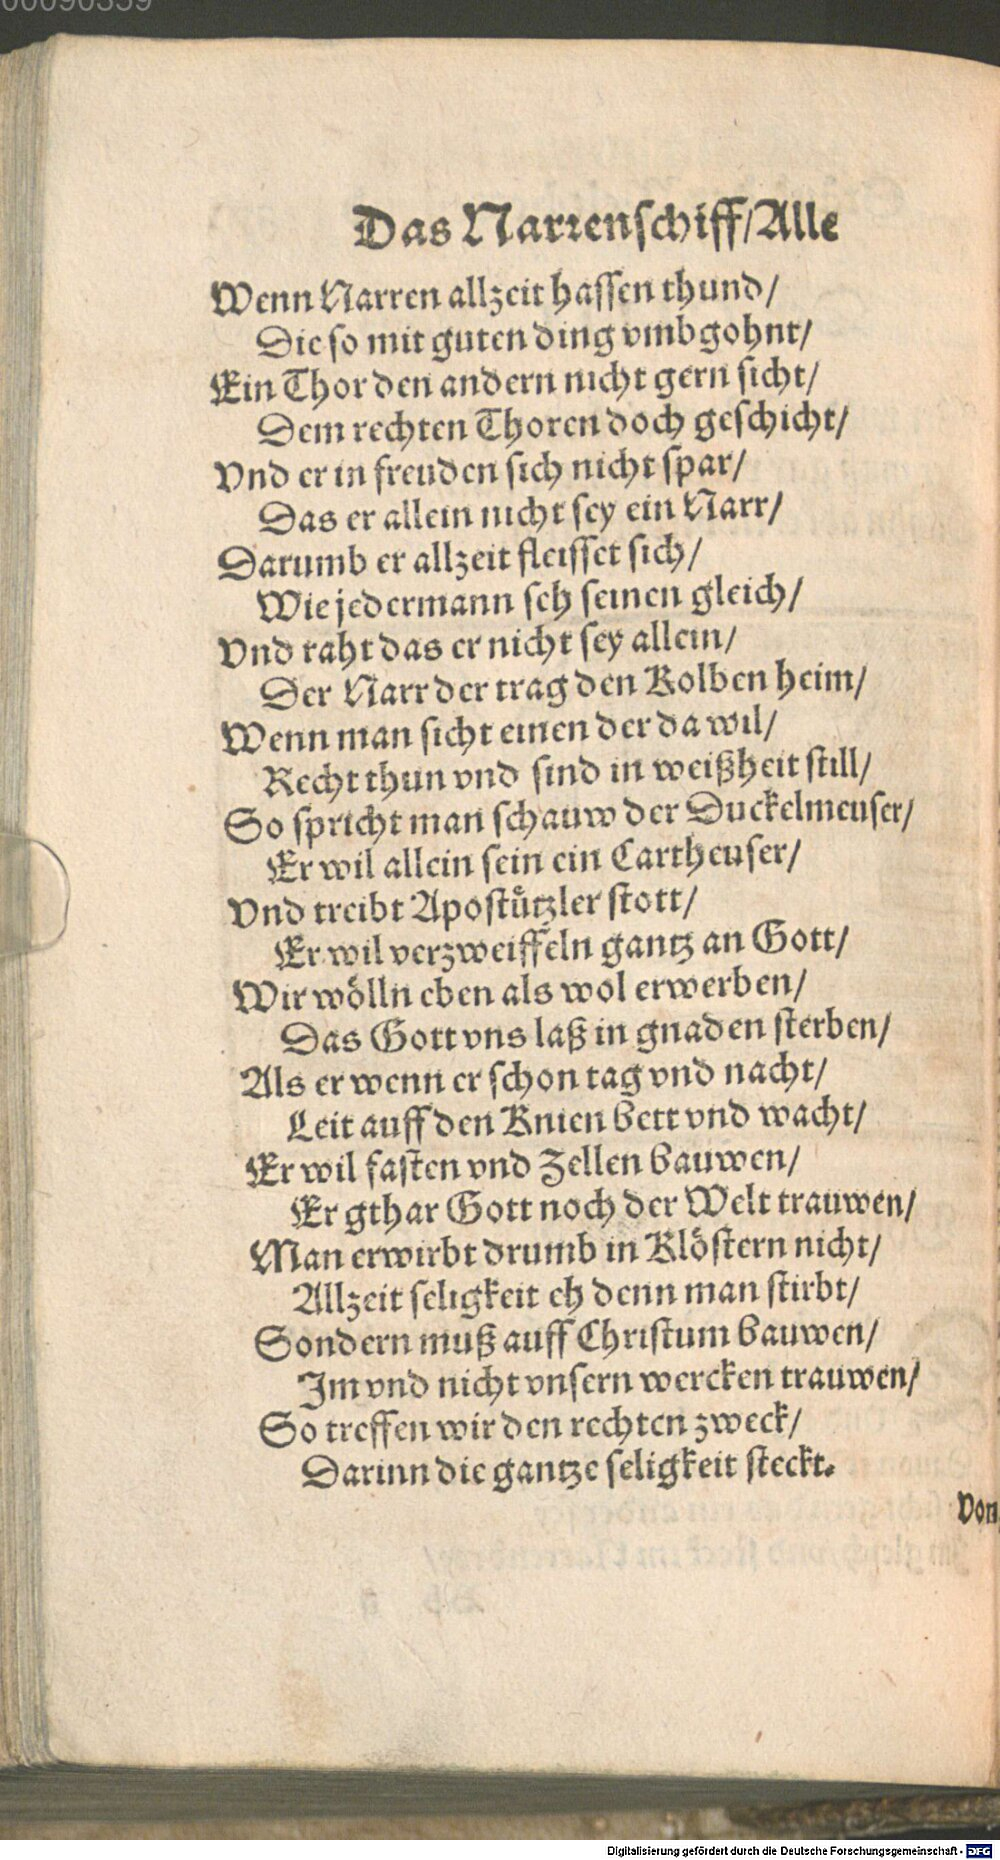 00090359
Das Narrenschiff/Alle
Wenn Narren allzeit hassen thund/
Die so mit guten ding vmbgohnt/
Ein Thor den andern nicht gern sicht/
Dem rechten Thoren doch geschicht/
Vnd er in freuden sich nicht spar/
Das er allein nicht sey ein Narr/
Darumb er allzeit fleisset sich/
Wie jedermann seh seinen gleich/
Vnd raht das er nicht sey allein/
Der Narr der trag den Kolben heim/
Wenn man sicht einen der da wil/
Recht thun vnd sind in weißheit still/
So spricht man schauw der Duckelmeuser/
Er wil allein sein ein Cartheuser/
Vnd treibt Apostützler stott/
Er wil verzweiffeln gantz an Gott/
Wir wölln eben als wol erwerben/
Das Gott vns laß in gnaden sterben/
Als er wenn er schon tag vnd nacht/
Leit auff den Knien bett vnd wacht/
Er wil fasten vnd Zellen bauwen/
Er gthar Gott noch der Welt trauwen/
Man erwirbt drumb in Klöstern nicht/
Allzeit seligkeit eh denn man stirbt/
Sondern muß auff Christum bauwen/
Im vnd nicht vnsern wercken trauwen/
So treffen wir den rechten zweck/
Darinn die gantze seligkeit steckt.
Von
Digitalisierung gefördert durch die Deutsche Forschungsgemeinschaft - DFG